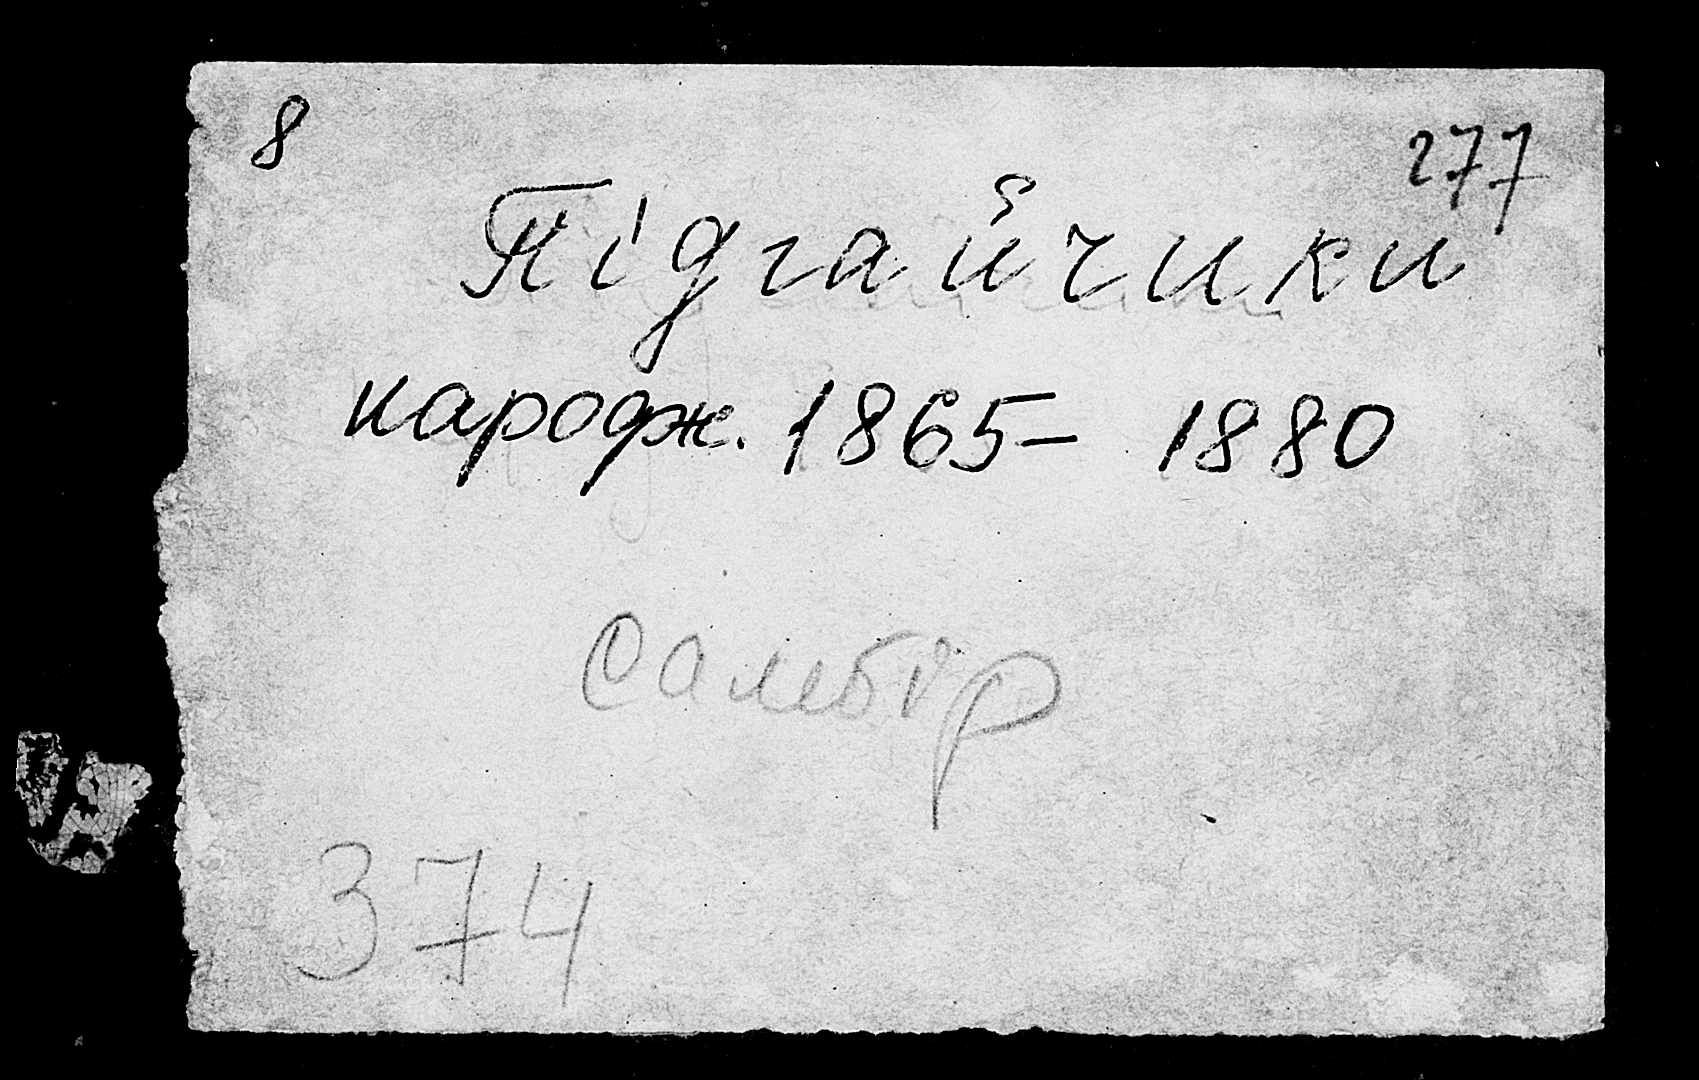 8
277
Підгайчики
народж. 1865- 1880
Самбір
374